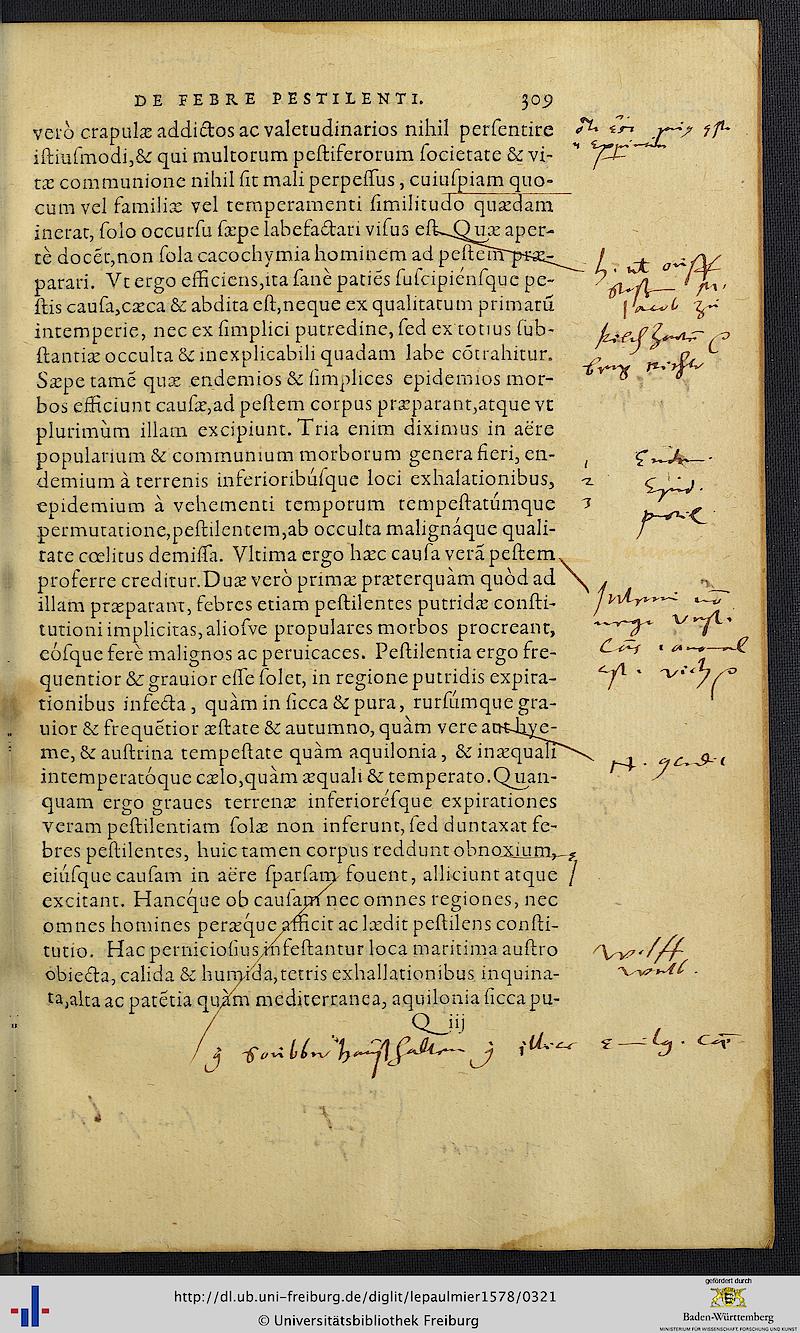 DE FEBRE PESTILENTI. 309
verò crapulæ addictos ac valetudinarios nihil perſentire
iſtiuſmodi,& qui multorum peſtiferorum ſocietate & vi-
tæ communione nihil ſit mali perpeſſus, cuiuſpiam quo-
cum vel familiæ vel temperamenti ſimilitudo quædam
inerat, ſolo occurſu ſæpe labefactari viſus eſt. Quæ aper-
tè docēt,non ſola cacochymia hominem ad peſtem præ-
parari. Vt ergo efficiens,ita ſanè patiēs ſuſcipiénſque pe-
ſtis cauſa,cæca & abdita eſt,neque ex qualitatum primarū
intemperie, nec ex ſimplici putredine, ſed ex totius ſub-
ſtantiæ occulta & inexplicabili quadam labe cōtrahitur.
Sæpe tamē quæ endemios & ſimplices epidemios mor-
bos efficiunt cauſæ,ad peſtem corpus præparant,atque vt
plurimùm illam excipiunt. Tria enim diximus in aëre
popularium & communium morborum genera fieri, en-
demium à terrenis inferioribúſque loci exhalationibus,
epidemium à vehementi temporum tempeſtatúmque
permutatione,peſtilentem,ab occulta malignáque quali-
tate cœlitus demiſſa. Vltima ergo hæc cauſa verā peſtem
proferre creditur. Duæ verò primæ præterquàm quòd ad
illam præparant, febres etiam peſtilentes putridæ conſti-
tutioni implicitas, alioſve propulares morbos procreant,
eóſque ferè malignos ac peruicaces. Peſtilentia ergo fre-
quentior & grauior eſſe ſolet, in regione putridis expira-
tionibus infecta, quàm in ſicca & pura, rurſúmque gra-
uior & frequētior æſtate & autumno, quàm vere aut hye-
me, & auſtrina tempeſtate quàm aquilonia, & inæquali
intemperatóque cælo,quàm æquali & temperato. Quan-
quam ergo graues terrenæ inferioréſque expirationes
veram peſtilentiam ſolæ non inferunt, ſed duntaxat fe-
bres peſtilentes, huic tamen corpus reddunt obnoxium,
eiúſque cauſam in aëre ſparſam fouent, alliciunt atque
excitant. Hancque ob cauſam nec omnes regiones, nec
omnes homines peræque afficit ac lædit peſtilens conſti-
tutio. Hac pernicioſius infeſtantur loca maritima auſtro
obiecta, calida & humida, tetris exhallationibus inquina-
ta,alta ac patētia quàm mediterranea, aquilonia ſicca pu-
Q iij
Jacob
1
2
3
http://dl.ub.uni-freiburg.de/diglit/lepaulmier1578/0321
© Universitätsbibliothek Freiburg
gefördert durch
Baden-Württemberg
MINISTERIUM FÜR WISSENSCHAFT, FORSCHUNG UND KUNST